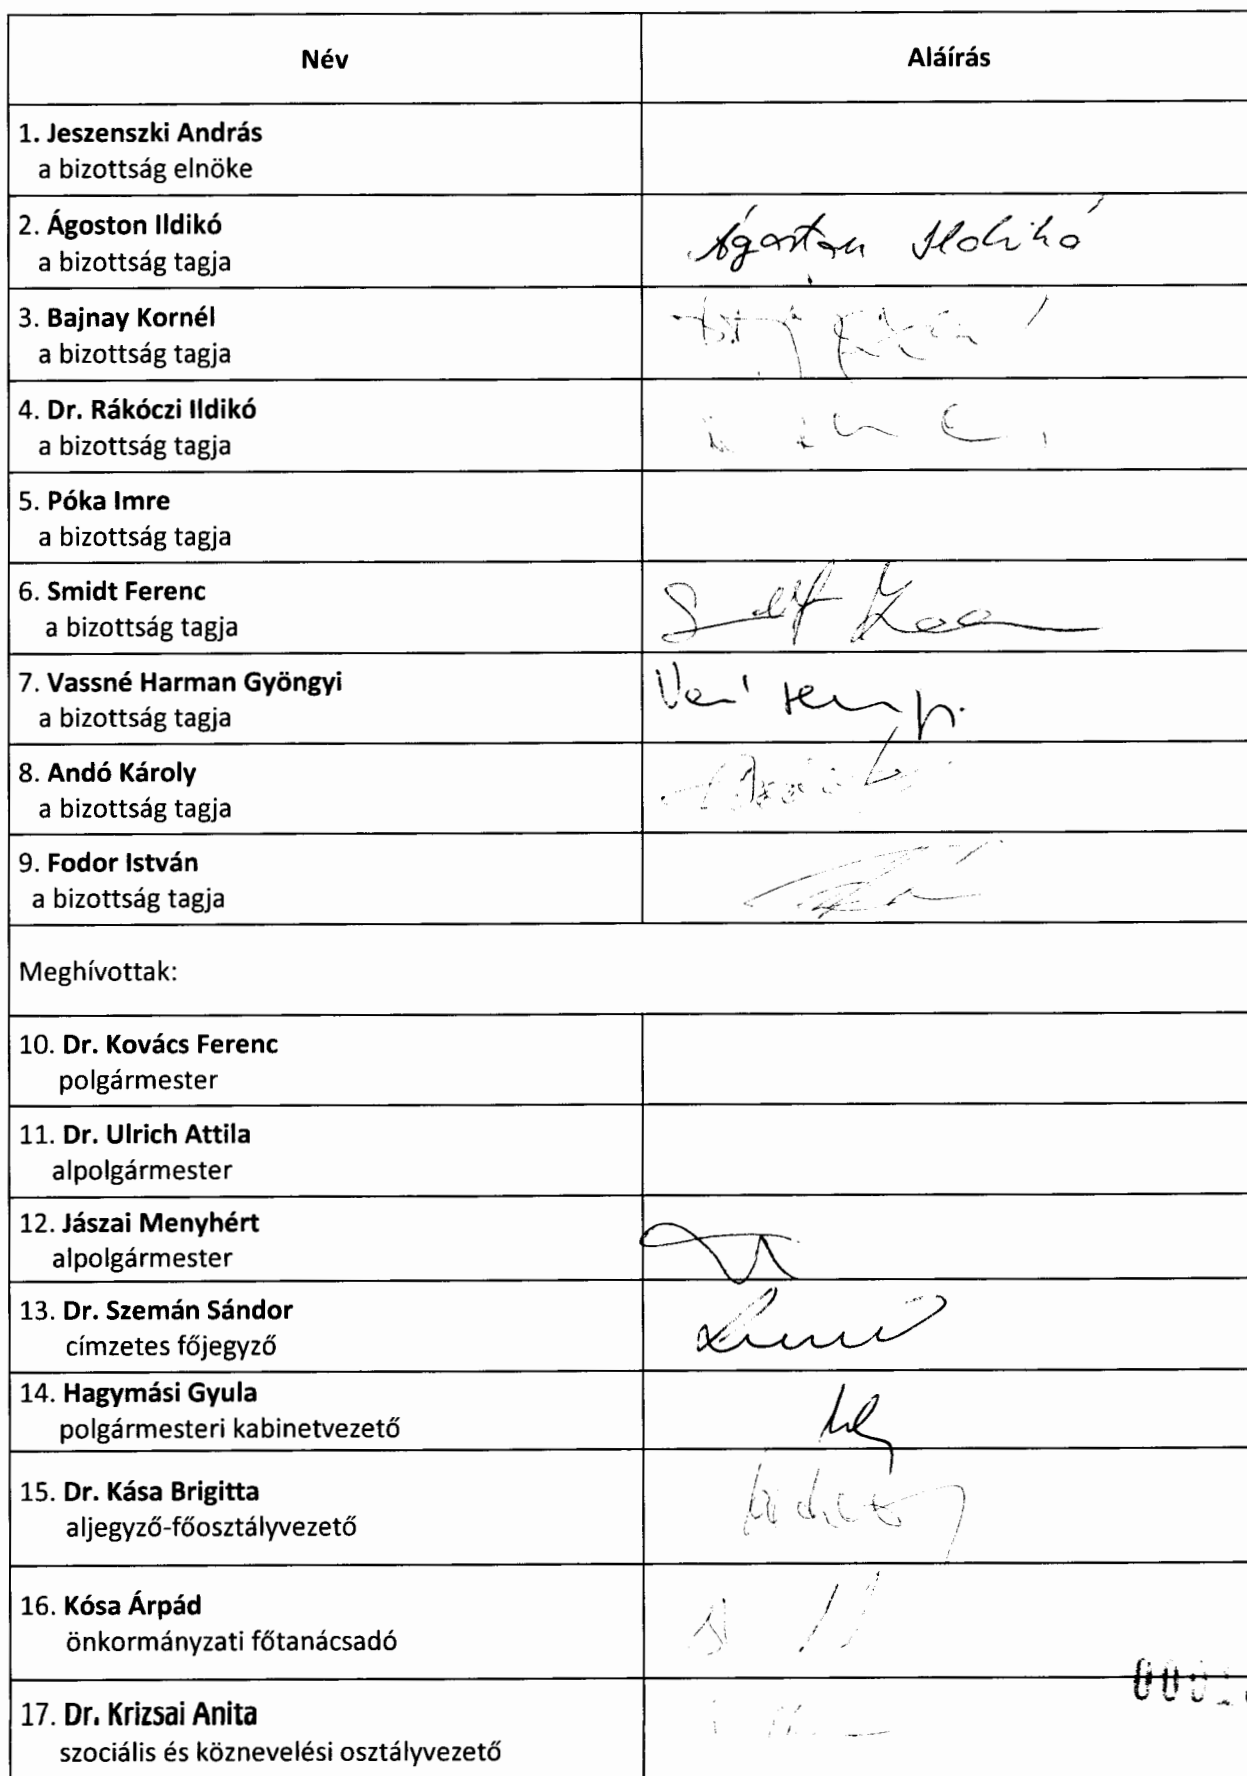 Név
Aláírás
1. Jeszenszki András
a bizottság elnöke
2. Ágoston Ildikó
a bizottság tagja
Ágoston Ildikó
3. Bajnay Kornél
a bizottság tagja
4. Dr. Rákóczi Ildikó
a bizottság tagja
5. Póka Imre
a bizottság tagja
6. Smidt Ferenc
a bizottság tagja
7. Vassné Harman Gyöngyi
a bizottság tagja
8. Andó Károly
a bizottság tagja
9. Fodor István
a bizottság tagja
Meghívottak:
10. Dr. Kovács Ferenc
polgármester
11. Dr. Ulrich Attila
alpolgármester
12. Jászai Menyhért
alpolgármester
13. Dr. Szemán Sándor
címzetes főjegyző
14. Hagymási Gyula
polgármesteri kabinetvezető
15. Dr. Kása Brigitta
aljegyző-főosztályvezető
16. Kósa Árpád
önkormányzati főtanácsadó
17. Dr. Krizsai Anita
szociális és köznevelési osztályvezető